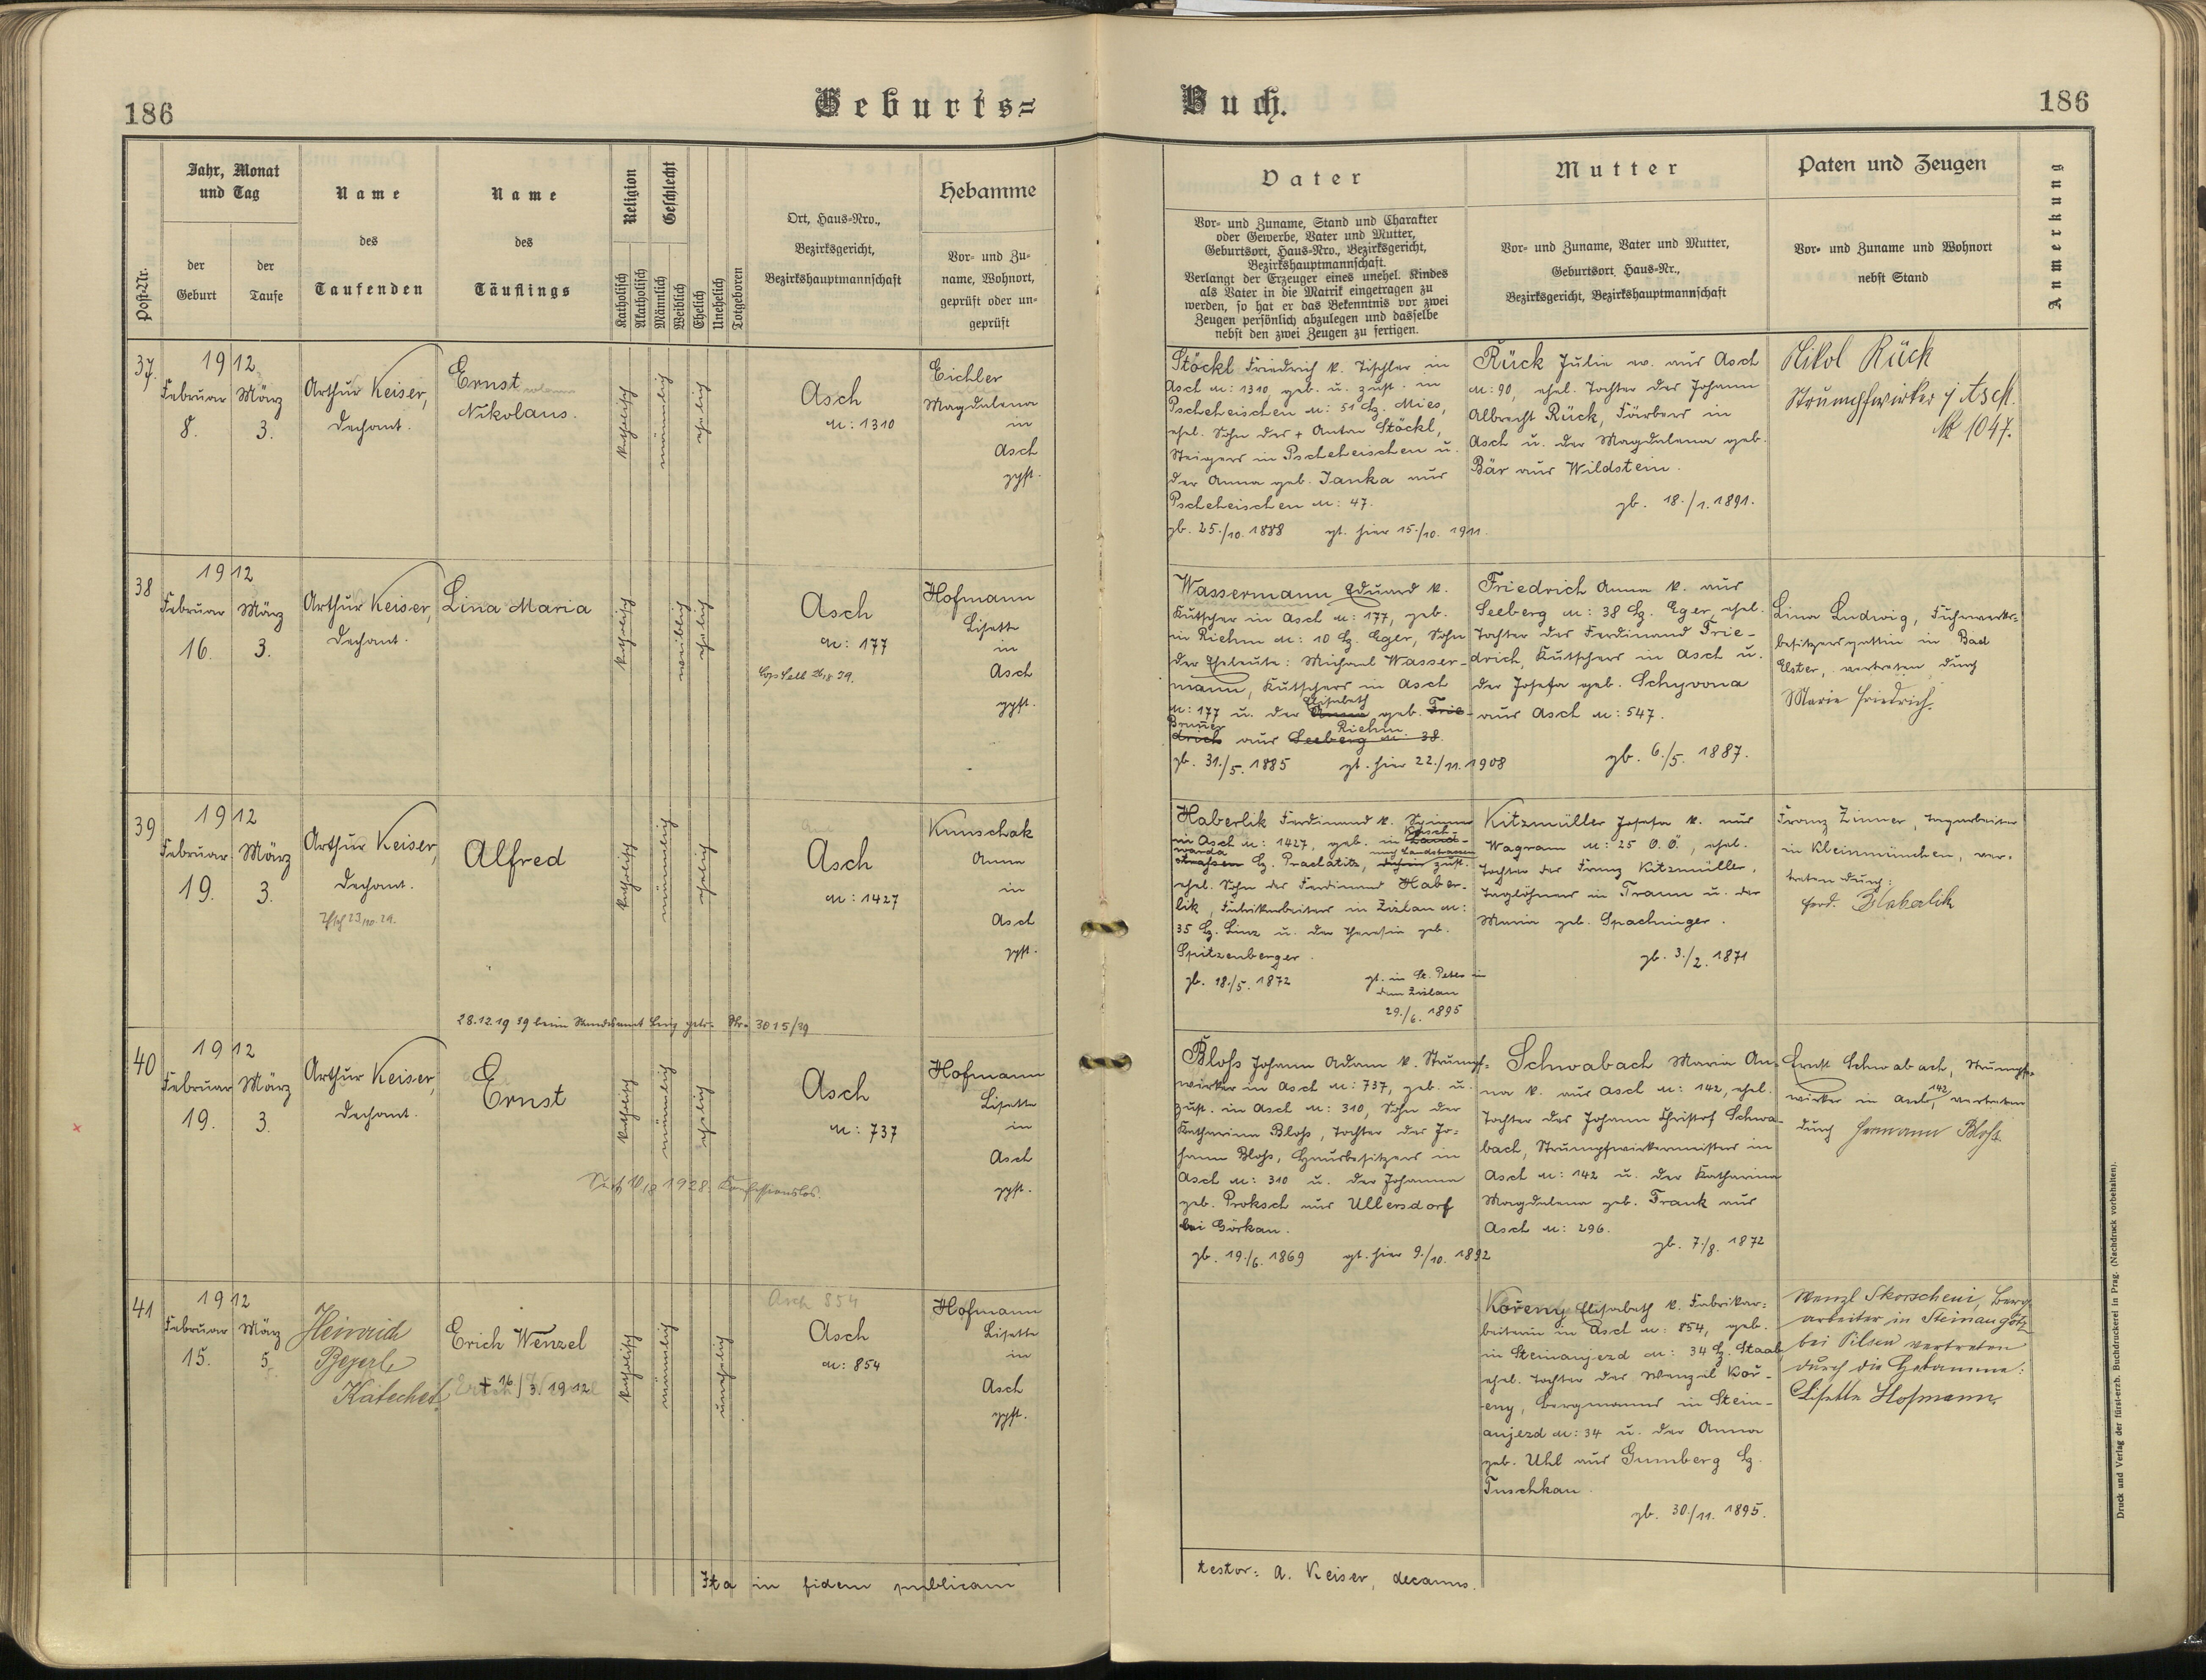 186
Geburts=
Buch.
186
Post-Nr.
Jahr, Monat
und Tag
der
Geburt
der
Taufe
Name
des
Taufenden
Name
des
Täuflings
Religion
Katholisch
Akatholisch
Geschlecht
Männlich
Weiblich
Ehelich
Unehelich
Totgeboren
Ort, Haus=Nro.,
Bezirksgericht,
Bezirkshauptmannschaft
Hebamme
Vor- und Zu-
name, Wohnort,
geprüft oder un-
geprüft
Vater
Vor- und Zuname, Stand und Charakter
oder Gewerbe, Vater und Mutter,
Geburtsort, Haus=Nro., Bezirksgericht,
Bezirkshauptmannschaft.
Verlangt der Erzeuger eines unehel. Kindes
als Vater in die Matrik eingetragen zu
werden, so hat er das Bekenntnis vor zwei
Zeugen persönlich abzulegen und dasselbe
nebst den zwei Zeugen zu fertigen.
Mutter
Vor- und Zuname, Vater und Mutter,
Geburtsort, Haus=Nr.,
Bezirksgericht, Bezirkshauptmannschaft
Paten und Zeugen
Vor- und Zuname und Wohnort
nebst Stand
Anmerkung
37.
1912
Februar
8.
März
3.
Arthur Keiser,
Dechant.
Ernst
Nikolaus.
katholisch
männlich
ehelich
Asch
N: 1310
Eichler
Magdalena
in
Asch
gpft.
Stöckl Friedrich k. Tischler in
Asch N: 1310 geb. u. zust. in
Pscheheischen N: 51 Bz. Mies,
ehel. Sohn des + Anton Stöckl,
Steigers in Pscheheischen u.
der Anna geb. Janka aus
Pscheheischen N: 47.
gb. 25./10. 1888 gt. hier 15./10. 1911.
Rück Julie ev. aus Asch
N: 90, ehel. Tochter des Johann
Albrecht Rück, Färbers in
Asch u. der Magdalena geb.
Bär aus Wildstein.
gb. 18./1. 1891.
Nikol Rück
Strumpfwirker i Asch.
N 1047.
38
1912
Februar
16.
März
3.
Arthur Keiser,
Dechant.
Lina Maria
katholisch
weiblich
ehelich
Asch
N: 177
Hofmann
Lisette
in
Asch
gpft.
Wassermann Eduard k.
Kutscher in Asch N: 177, geb.
in Riehm N: 10 Bz. Eger, Sohn
der Eheleute: Michael Wasser-
mann, Kutschers in Asch
Elisabeth
N: 177 u. der Anna geb. Frie-
Riehm.
drich aus Seeberg N: 38.
gb. 31./5. 1885 gt. hier 22./11. 1908
Friedrich Anna k. aus
Seeberg N: 38 Bz. Eger, ehel.
Tochter des Ferdinand Frie-
drich, Kutschers in Asch u.
der Josefa geb. Schyvona
aus Asch N: 547.
gb. 6./5. 1887.
Lina Ludwig, Fuhrwerks-
besitzersgattin in Bad
Elster, vertreten durch
Marie Friedrich.
39
1912
Februar
19.
März
3.
Arthur Keiser,
Dechant.
Alfred
katholisch
männlich
ehelich
Asch
N: 1427
Kunschak
Anna
in
Asch
gpft.
Haberlik Ferdinand k. Spinner
in Asch N: 1427, geb. in Land-
strassen Bz. Prachatitz, dahin zust.
ehel. Sohn des Ferdinand Haber-
lik, Fabrikarbeiters in Zizlau N:
35 Bz. Linz u. der Theresia geb.
Spitzenberger.
gb. 18./5. 1872
gt. in St. Peter in
der Zizlau
29./6. 1895
Kitzmüller Josefa k. aus
Wagram N: 25 O.Ö., ehel.
Tochter des Franz Kitzmüller,
Taglöhners in Traun u. der
Maria geb. Spachinger.
gb. 3./2. 1871
Franz Zinner, Tagarbeiter
in Kleinmünchen, ver-
treten durch:
Ferd. Haberlik
28.12.1939 beim Standesamt Linz getr. Nr. 3015/39
40
1912
Februar
19.
März
3.
Arthur Keiser,
Dechant.
Ernst
katholisch
männlich
ehelich
Asch
N: 737
1928. Konfessionslos.
Hofmann
Lisette
in
Asch
gpft.
Bloß Johann Adam k. Strumpf-
wirker in Asch N: 737, geb. u.
zust. in Asch N: 310, Sohn der
Katharina Bloß, Tochter des Jo-
hann Bloß, Hausbesitzers in
Asch N: 310 u. der Johanna
geb. Proksch aus Ullersdorf
bei Görkau.
gb. 19./6. 1869 gt. hier 9./10. 1892
Schwabach Maria An-
na k. aus Asch N: 142, ehel.
Tochter des Johann Christof Schwa-
bach, Strumpfwirkermeisters in
Asch N: 142 u. der Katharina
Magdalena geb. Frank aus
Asch N: 296.
gb. 7./8. 1872
Ernst Schwabach, Strumpf-
wirker in Asch, 142 vertreten
durch Hermann Bloß.
41
1912
Februar
15.
März
5.
Heinrich
Beyerl
Katechet.
Erich Wenzel
+ 16/3 1912
katholisch
männlich
unehelich
Asch 854
Asch
N: 854
Hofmann
Lisette
in
Asch
gpft.
Kořeny Elisabeth k. Fabrikar-
beiterin in Asch N: 854, geb.
in Steinaujezd N: 34 Bz. Staab
ehel. Tochter des Wenzel Koř-
eny, Bergmanns in Stein-
aujezd N: 34 u. der Anna
geb. Uhl aus Gumberg Bz.
Tuschkau.
gb. 30./11. 1895.
Wenzl Skorscheni, Berg-
arbeiter in Steinaugötz
bei Pilsen vertreten
durch die Hebamme:
Lisette Hofmann.
Ita in fidem publicam
testor: A. Keiser, decanus.
Druck und Verlag der fürst-erzb. Buchdruckerei in Prag. (Nachdruck vorbehalten).